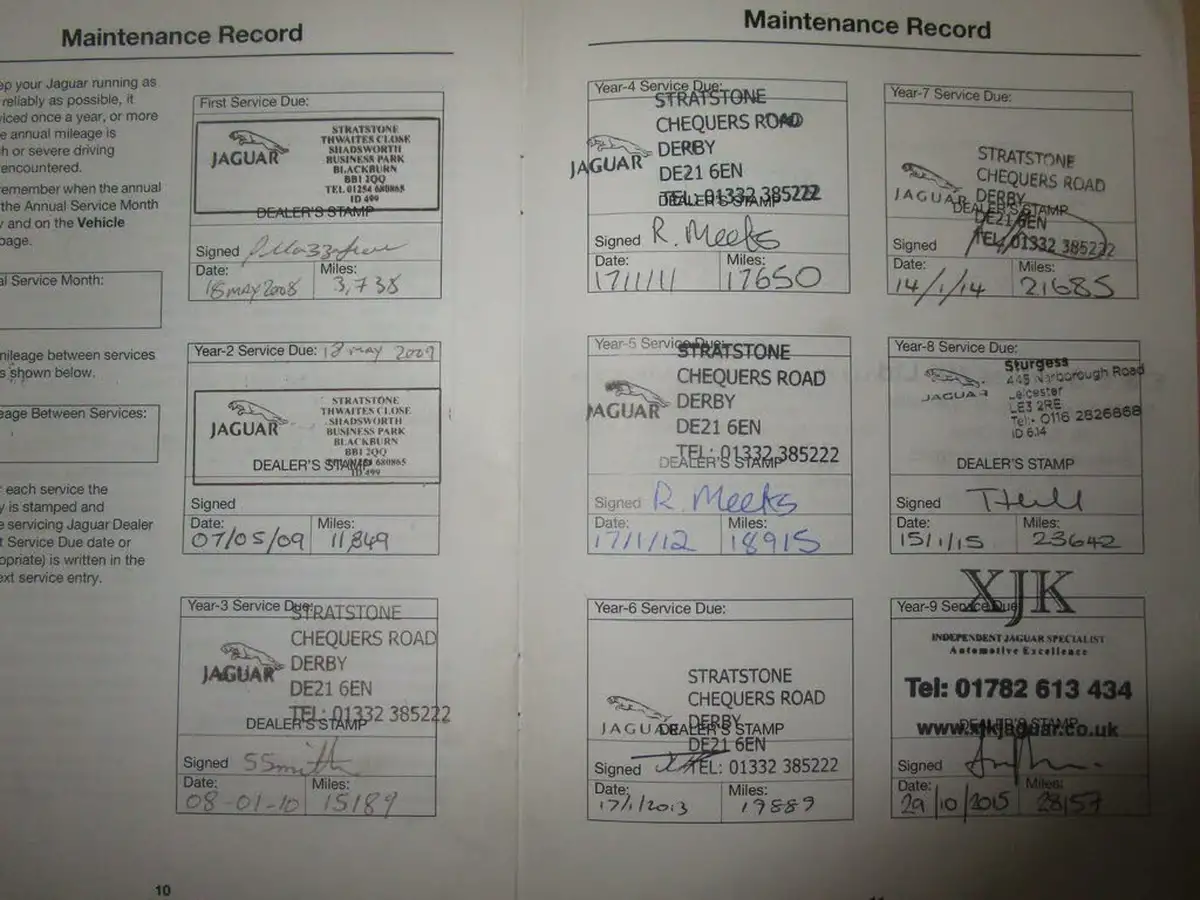 Maintenance Record
ep your Jaguar running as
reliably as possible, it
viced once a year, or more
e annual mileage is
h or severe driving
encountered.
remember when the annual
the Annual Service Month
y and on the Vehicle
page.
al Service Month:
mileage between services
s shown below.
eage Between Services:
r each service the
y is stamped and
e servicing Jaguar Dealer
t Service Due date or
opriate) is written in the
ext service entry.
First Service Due:
JAGUAR
STRATSTONE
THWAITES CLOSE
SHADSWORTH
BUSINESS PARK
BLACKBURN
BB1 2QQ
TEL 01254 680865
ID 499
DEALER'S STAMP
Signed
Date: Miles:
18 MAY 2008 3,738
Year-2 Service Due: 18 MAY 2009
JAGUAR
STRATSTONE
THWAITES CLOSE
SHADSWORTH
BUSINESS PARK
BLACKBURN
BB1 2QQ
680865
ID 499
DEALER'S STAMP
Signed
Date: Miles:
07/05/09 11,849
Year-3 Service Due:
JAGUAR
STRATSTONE
CHEQUERS ROAD
DERBY
DE21 6EN
TEL: 01332 385222
DEALER'S STAMP
Signed SSmith
Date: Miles:
08-01-10 15189
10
Maintenance Record
Year-4 Service Due:
JAGUAR
STRATSTONE
CHEQUERS ROAD
DERBY
DE21 6EN
TEL: 01332 385222
DEALER'S STAMP
Signed R. Meeks
Date: Miles:
17/1/11 17650
Year-5 Service Due:
JAGUAR
STRATSTONE
CHEQUERS ROAD
DERBY
DE21 6EN
TEL: 01332 385222
DEALER'S STAMP
Signed R. Meeks
Date: Miles:
17/1/12 18915
Year-6 Service Due:
JAGUAR
STRATSTONE
CHEQUERS ROAD
DERBY
DE21 6EN
TEL: 01332 385222
DEALER'S STAMP
Signed
Date: Miles:
17/1/2013 19889
Year-7 Service Due:
JAGUAR
STRATSTONE
CHEQUERS ROAD
DERBY
DE21 6EN
TEL: 01332 385222
DEALER'S STAMP
Signed
Date: Miles:
14/1/14 21685
Year-8 Service Due:
JAGUAR
Sturgess
445 Narborough Road
Leicester
LE3 2RE
Tel:- 0116 2826668
ID 614
DEALER'S STAMP
Signed T Hull
Date: Miles:
15/1/15 23642
Year-9 Service Due:
XJK
INDEPENDENT JAGUAR SPECIALIST
Automotive Excellence
Tel: 01782 613 434
www.xjkjaguar.co.uk
DEALER'S STAMP
Signed
Date: Miles:
29/10/2015 28157